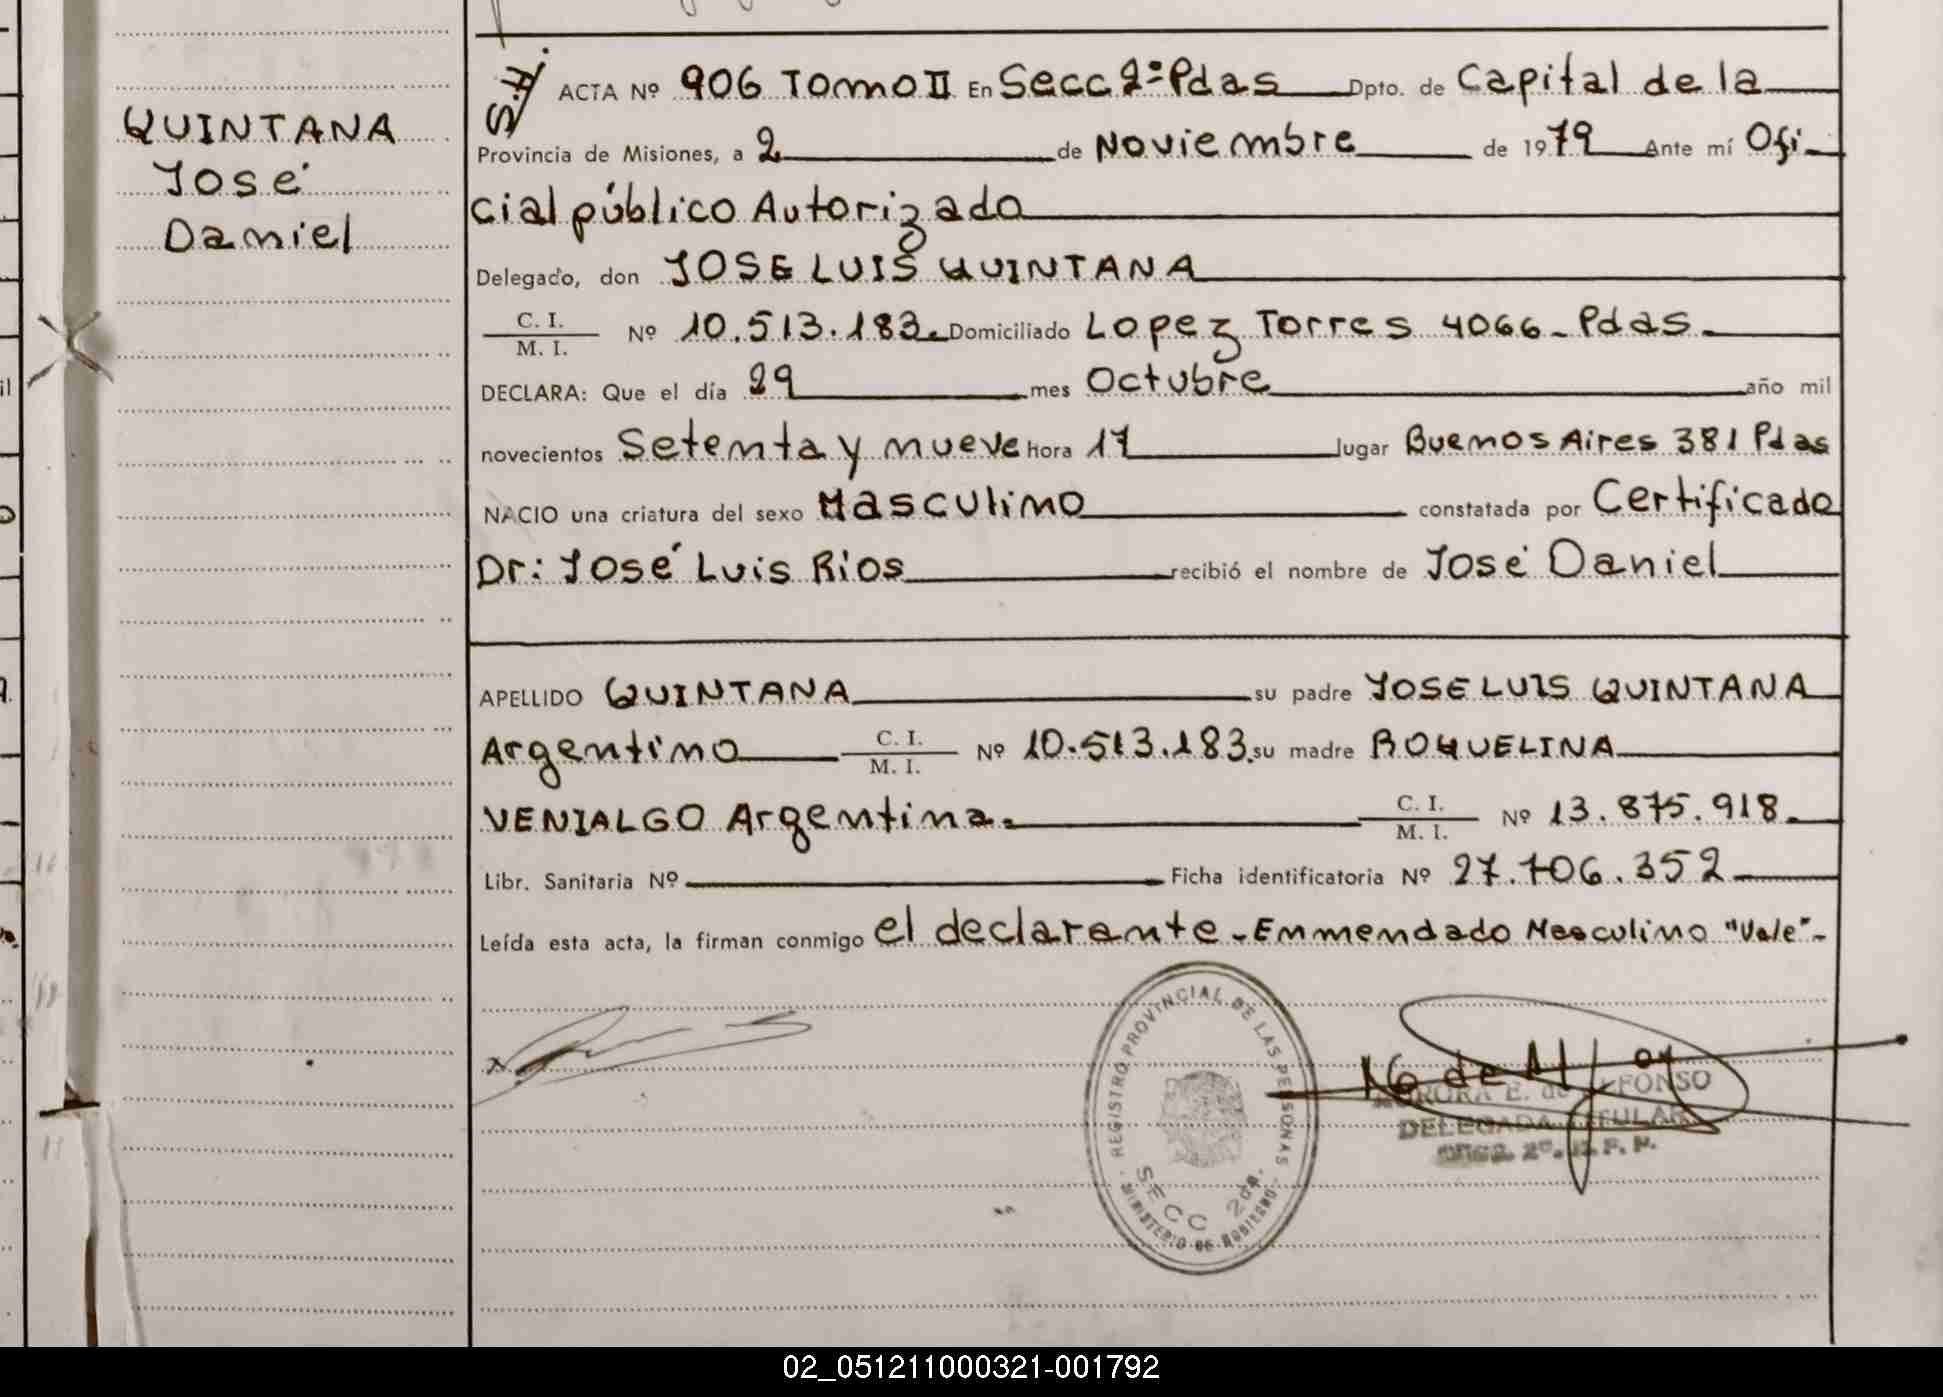 QUINTANA
José
Daniel
ACTA Nº 906 Tomo II En Secc 2ª Pdas Dpto. de Capital de la
Provincia de Misiones, a 2 de Noviembre de 1979 Ante mí Ofi-
cial público Autorizado
Delegado, don JOSE LUIS QUINTANA
C. I.
M. I. Nº 10.513.183. Domiciliado Lopez Torres 4066 - Pdas.
DECLARA: Que el día 29 mes Octubre año mil
novecientos Setenta y nueve hora 17 lugar Buenos Aires 381 Pdas
NACIO una criatura del sexo Masculino constatada por Certificado
Dr: José Luis Rios recibió el nombre de José Daniel
APELLIDO QUINTANA su padre JOSE LUIS QUINTANA
Argentino C. I. M. I. Nº 10.513.183. su madre ROQUELINA
VENIALGO Argentina. C. I. M. I. Nº 13.875.918.
Libr. Sanitaria Nº Ficha identificatoria Nº 27.706.352
Leída esta acta, la firman conmigo el declarante - Emmendado Masculino "Vale"-
REGISTRO PROVINCIAL DE LAS PERSONAS
SECC 2da.
MINISTERIO DE GOBIERNO
AURORA E. de ALFONSO
DELEGADA TITULAR
SECC. 2ª. R. P. P.
02_051211000321-001792